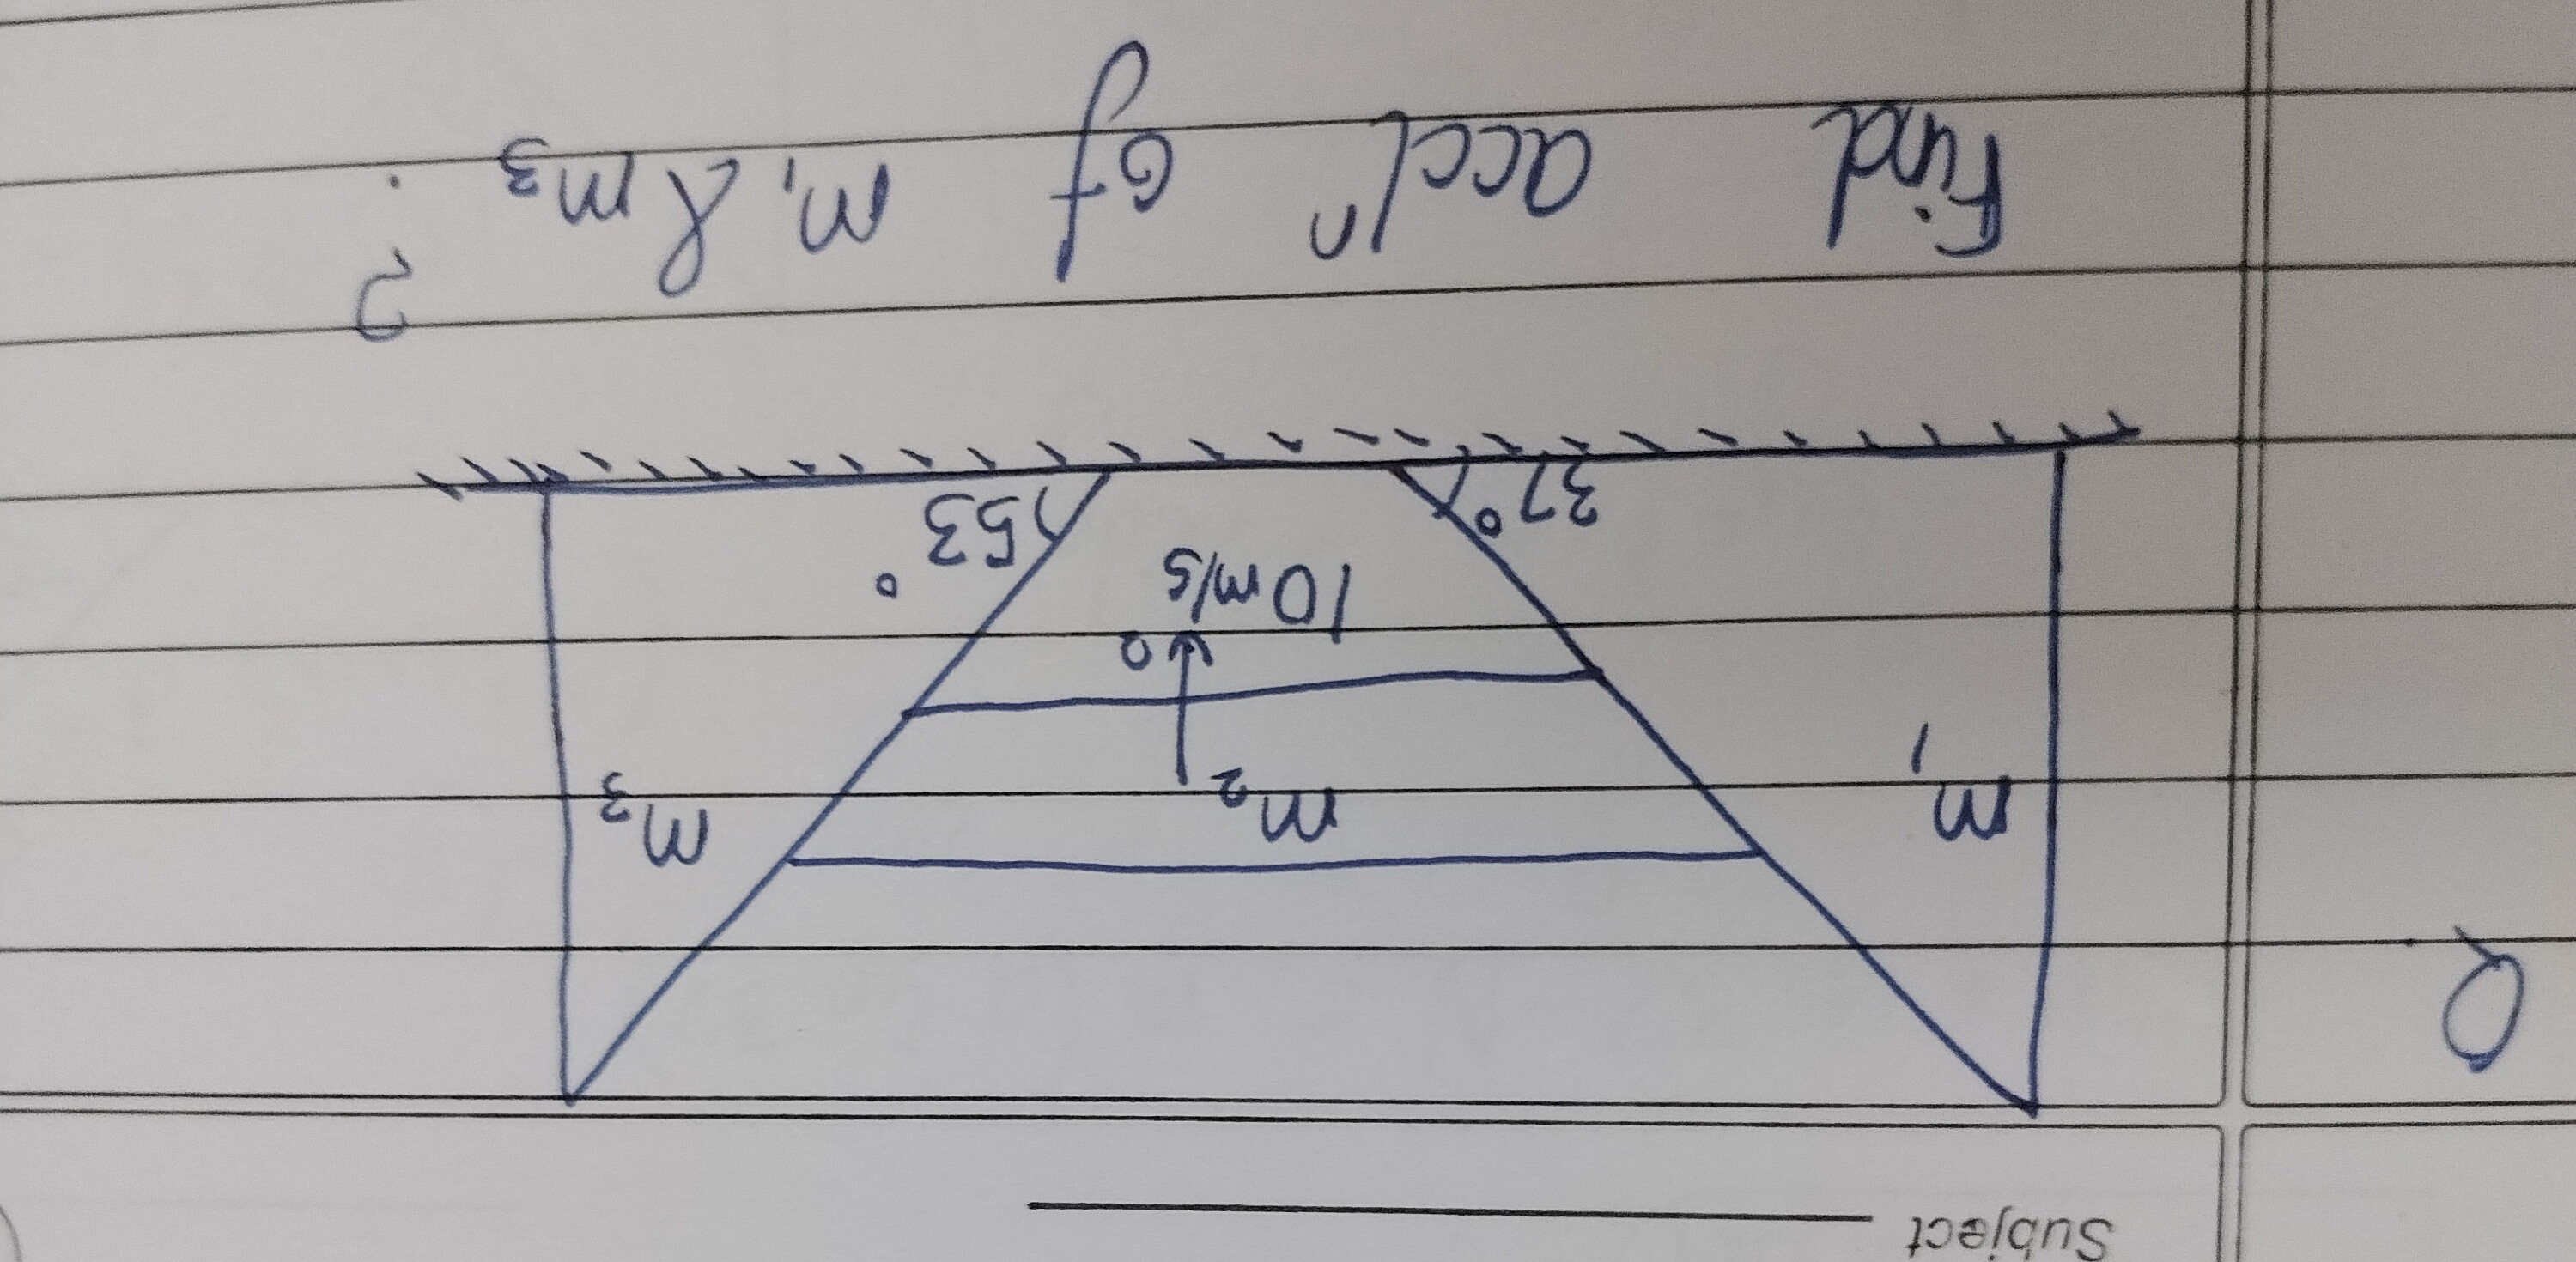 Subject
Q
m1
m2
m3
10 m/s2
37°
53°
Find accln of m1 & m3 ?